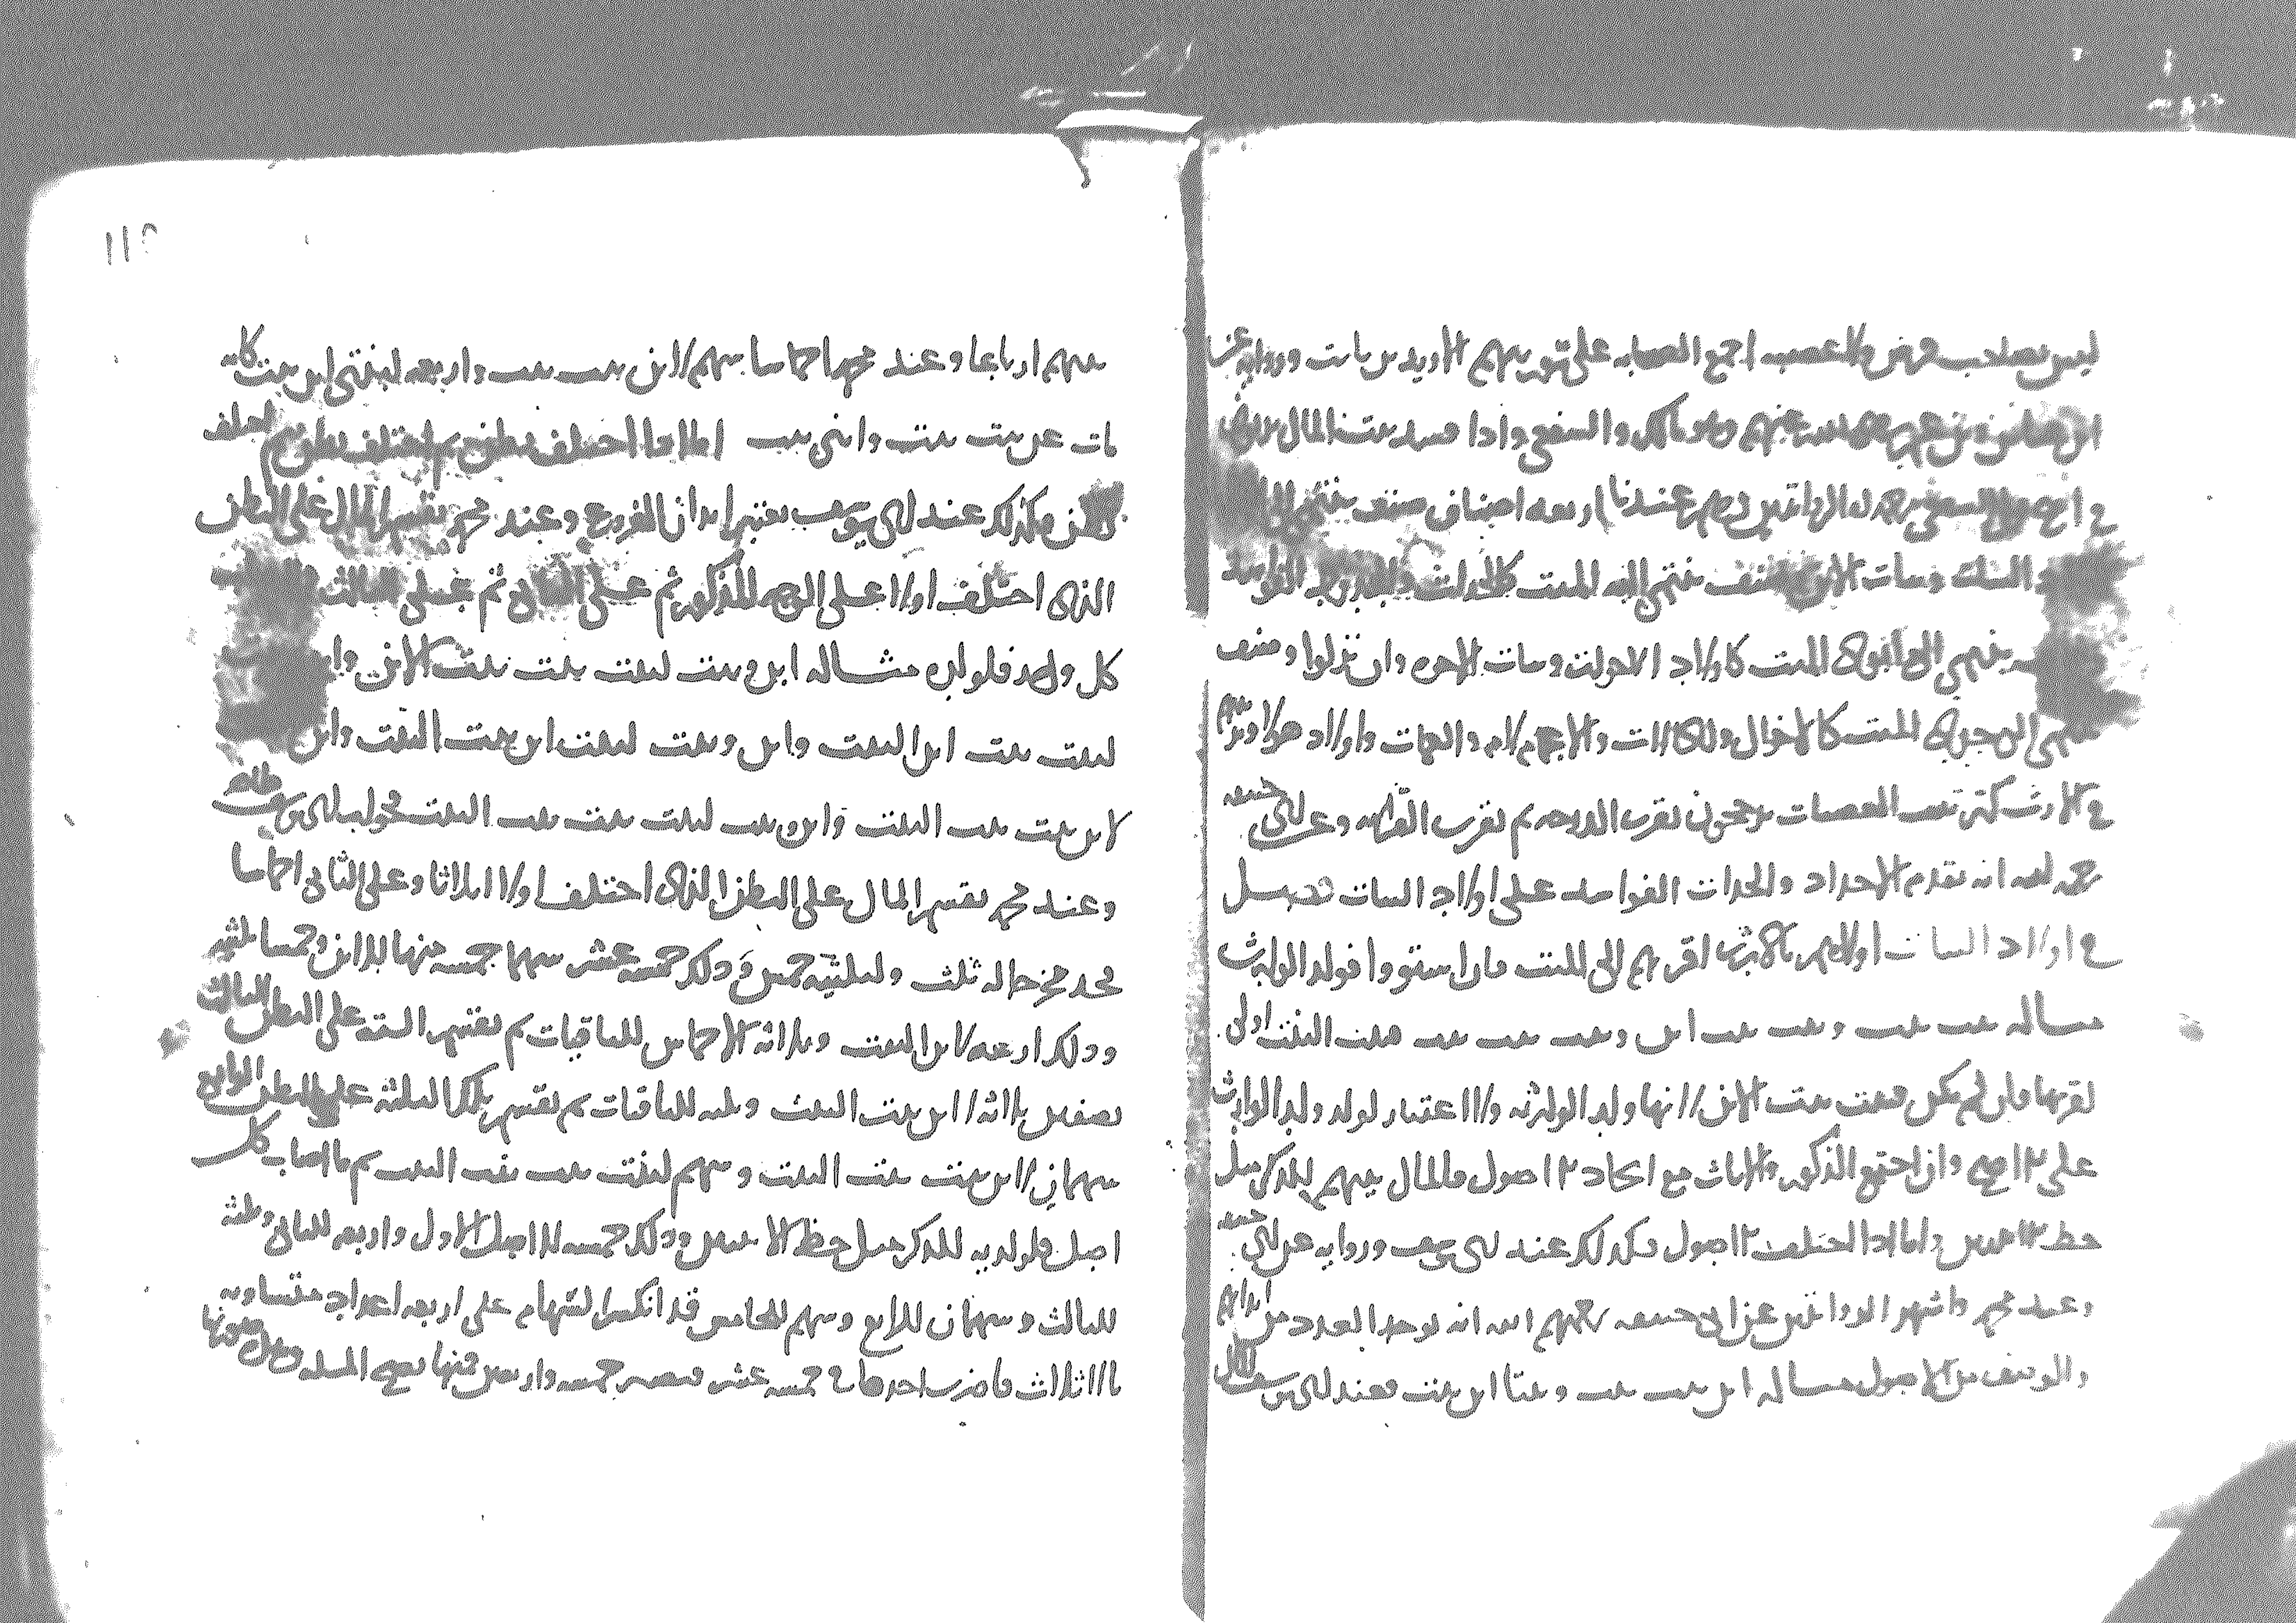 ليس بصاحب فرض ولا عصب اجمع الصحابه على توريثهم الا زيد بن ثابت وروايه عن
ابن عباس رضي الله عنهم وهو مالك والشافعي واذا فسد بيت المال
عندنا اربعه اصناف صنف ينتمي الى
البنات وبنات الابن وصنف ينتمي اليه الميت كالجدات والجدود الفواسد
ينتمي الى ابوي الميت كاولاد الاخوات وبنات الاخوه وان نزلوا وصنف
ينتمي الى جدي الميت كالاخوال والخالات والاعمام لام والعمات واولاد هولا وترتيبهم
في الارث كترتيب العصبات يرجحون بقرب الدرجه ثم بقرب القرابه وعن ابي حنيفه
رحمه الله انه تقدم الاجداد والجدات الفواسد على اولاد البنات فصل
في اولاد البنات اولاهم بالارث اقربهم الى الميت فان استووا فولد الوارث
مساله بنت بنت وبنت بنت ابن وبنت بنت بنت فبنت البنت اولى
لقربها فان لم تكن فبنت بنت الابن لانها ولد الوارثه ولا اعتبار لولد ولد الوارث
على الاصح وان اجتمع الذكور والاناث مع اتحاد الاصول فالمال بينهم للذكر مثل
حظ الانثيين واما اذا اختلفت الاصول فكذلك عند ابي يوسف وروايه عن ابي حنيفه
وعند محمد واشهر الروايتين عن ابي حنيفه رحمهم الله انه يوخذ العدد من ابدانهم
والوصف من الاصول مساله ابن بنت بنت وبنتا ابن بنت فعند ابي يوسف المال
١١٢
بينهم ارباعا وعند محمد اخماسا سهم لابن بنت بنت واربعه لبنتي ابن بنت كانه
مات عن بنت بنت وابني بنت اما اذا اختلف بطن ثم اختلف بطن ثم اختلف
بطن فكذلك عند ابي يوسف يعتبر ابدان الفروع وعند محمد يقسم المال على البطن
الذي اختلف اولا على الوجه المذكور ثم على الثاني ثم على الثالث
كل واحد فلولده مثاله ابن وبنت لبنت بنت بنت الابن وابن
لبنت بنت ابن البنت وابن وبنت لبنت ابن بنت البنت وابن
لابن بنت بنت البنت وابن وبنت لبنت بنت بنت البنت فجواب ابي يوسف ظاهر
وعند محمد يقسم المال على البطن الذي اختلف اولا اثلاثا وعلى الثاني اخماسا
فخذ مخرجا له ثلث ولثلثيه خمس وذلك خمسه عشر سهما خمسه منها للابن وخمسا ثلثيه
وذلك اربعه لابن البنت وثلاثه الاخماس للباقيات ثم يقسم السته على البطن الثالث
نصفين ثلاثه لابن بنت البنت وثلثه للباقيات ثم تقسم تلك الثلثه على البطن الرابع
سهمان لابن بنت بنت البنت وسهم لبنت بنت بنت البنت ثم ما اصاب كل
اصل فلولديه للذكر مثل حظ الانثيين وذلك خمسه للاصل الاول واربعه للثاني وثلثه
للثالث وسهمان للرابع وسهم للخامس قد انكسر السهام على اربعه اعداد متساويه
بالاثلاث فاضرب احدها في خمسه عشر فيصير خمسه واربعين فمنها تصح المسله